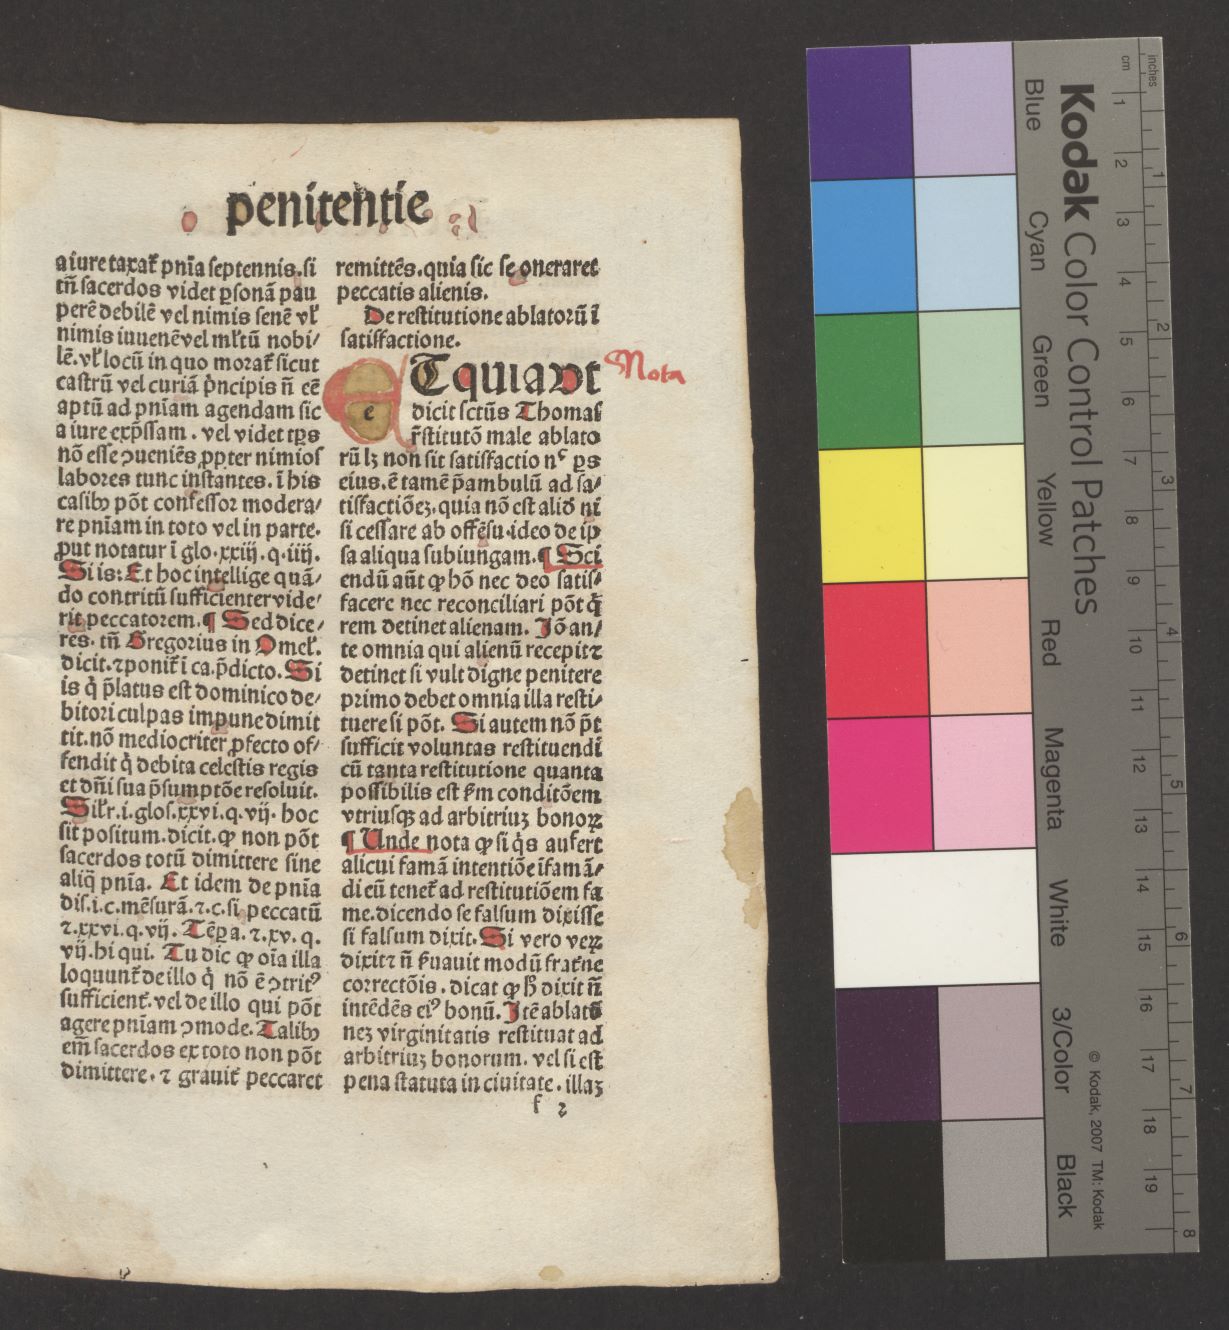 penitentie
a iure taxat᷑ pn̄ia septennis. si
tn̄ sacerdos videt ꝑsonā pau
perē debilē vel nimis senē vl᷑
nimis iuuenē vel ml᷑tū nobi/
lē. vl᷑ locū in quo morat᷑ sicut
castrū vel curiā p̄ncipis n̄ eē
aptū ad pn̄iam agendam sic
a iure exp̄ssam. vel videt tꝑs
nō esse ↄueniēs ꝓpter nimios
labores tunc instantes. ī his
casibꝰ pōt confessor modera/
re pn̄iam in toto vel in parte.
ꝓut notatur ī glo. xxiij. q. iiij.
Si is: Et hoc intellige quā/
do contritū sufficienter vide/
rit peccatorem. ¶ Sed dice/
res. tn̄ Gregorius in Omel᷑.
dicit. ⁊ ponit᷑ i ca. p̄dicto. Si
is q̇ p̄latus est dominico de/
bitori culpas impune dimit
tit. nō mediocriter ꝓfecto of/
fendit q̇ debita celestis regis
et dn̄i sua p̄sumptōe resoluit.
Sil᷑r. i. glos. xxvi. q. vij. hoc
sit positum. dicit. ꝙ non pōt
sacerdos totū dimittere sine
aliq̄ pnīa. Et idem de pnīa
dis. i. c. mēsurā. ⁊. c. si peccatū
⁊. xxvi. q. vij. Tēꝑa. ⁊. xv. q.
vij. hi qui. Tu dic ꝙ oīa illa
loquunt᷑ de illo q̇ nō ē ↄtritꝰ
sufficient᷑. vel de illo qui pōt
agere pnīam ↄmode. Talibꝰ
em̄ sacerdos ex toto non pōt
dimittere. ⁊ grauit᷑ peccaret
remittēs. quia sic se oneraret
peccatis alienis.
De restitutione ablatorū ī
satisfactione.
ETquia vt
e
Nota
dicit sctūs Thomas
r̄stitutō male ablato
rū lꝫ non sit satisfactio nᶜ ꝑs
eius. ē tamē p̄ambulū ad sa/
tisfactiōeꝫ. quia nō est aliđ ni
si cessare ab offēsu. ideo de ip
sa aliqua subiungam. ¶ Sci
endū aūt ꝙ hō nec deo satis/
facere nec reconciliari pōt q̄
rem detinet alienam. Iō an/
te omnia qui alienū recepit ⁊
detinet si vult digne penitere
primo debet omnia illa resti/
tuere si pōt. Si autem nō p̄t
sufficit voluntas restituendi
cū tanta restitutione quanta
possibilis est ẜm conditōem
vtriusqꝫ ad arbitriuꝫ bonoꝝ
¶ Unde nota ꝙ si q̇s aufert
alicui famā intentiōe īfamā/
di eū tenet᷑ ad restitutiōem fa
me. dicendo se falsum dixisse
si falsum dixit. Si vero veꝝ
dixit ⁊ n̄ ẜuauit modū frat᷑ne
correctōis. dicat ꝙ ħ dixit n̄
intēdēs eiꝰ bonū. Itē ablatō
neꝫ virginitatis restituat ad
arbitriuꝫ bonorum. vel si est
pena statuta in ciuitate. illaꝫ
f 2
Kodak Color Control Patches
Blue
Cyan
Green
Yellow
Red
Magenta
White
3/Color
Black
© Kodak, 2007 TM: Kodak
inches
cm
1 2 3 4 5 6 7 8 9 10 11 12 13 14 15 16 17 18 19
1 2 3 4 5 6 7 8